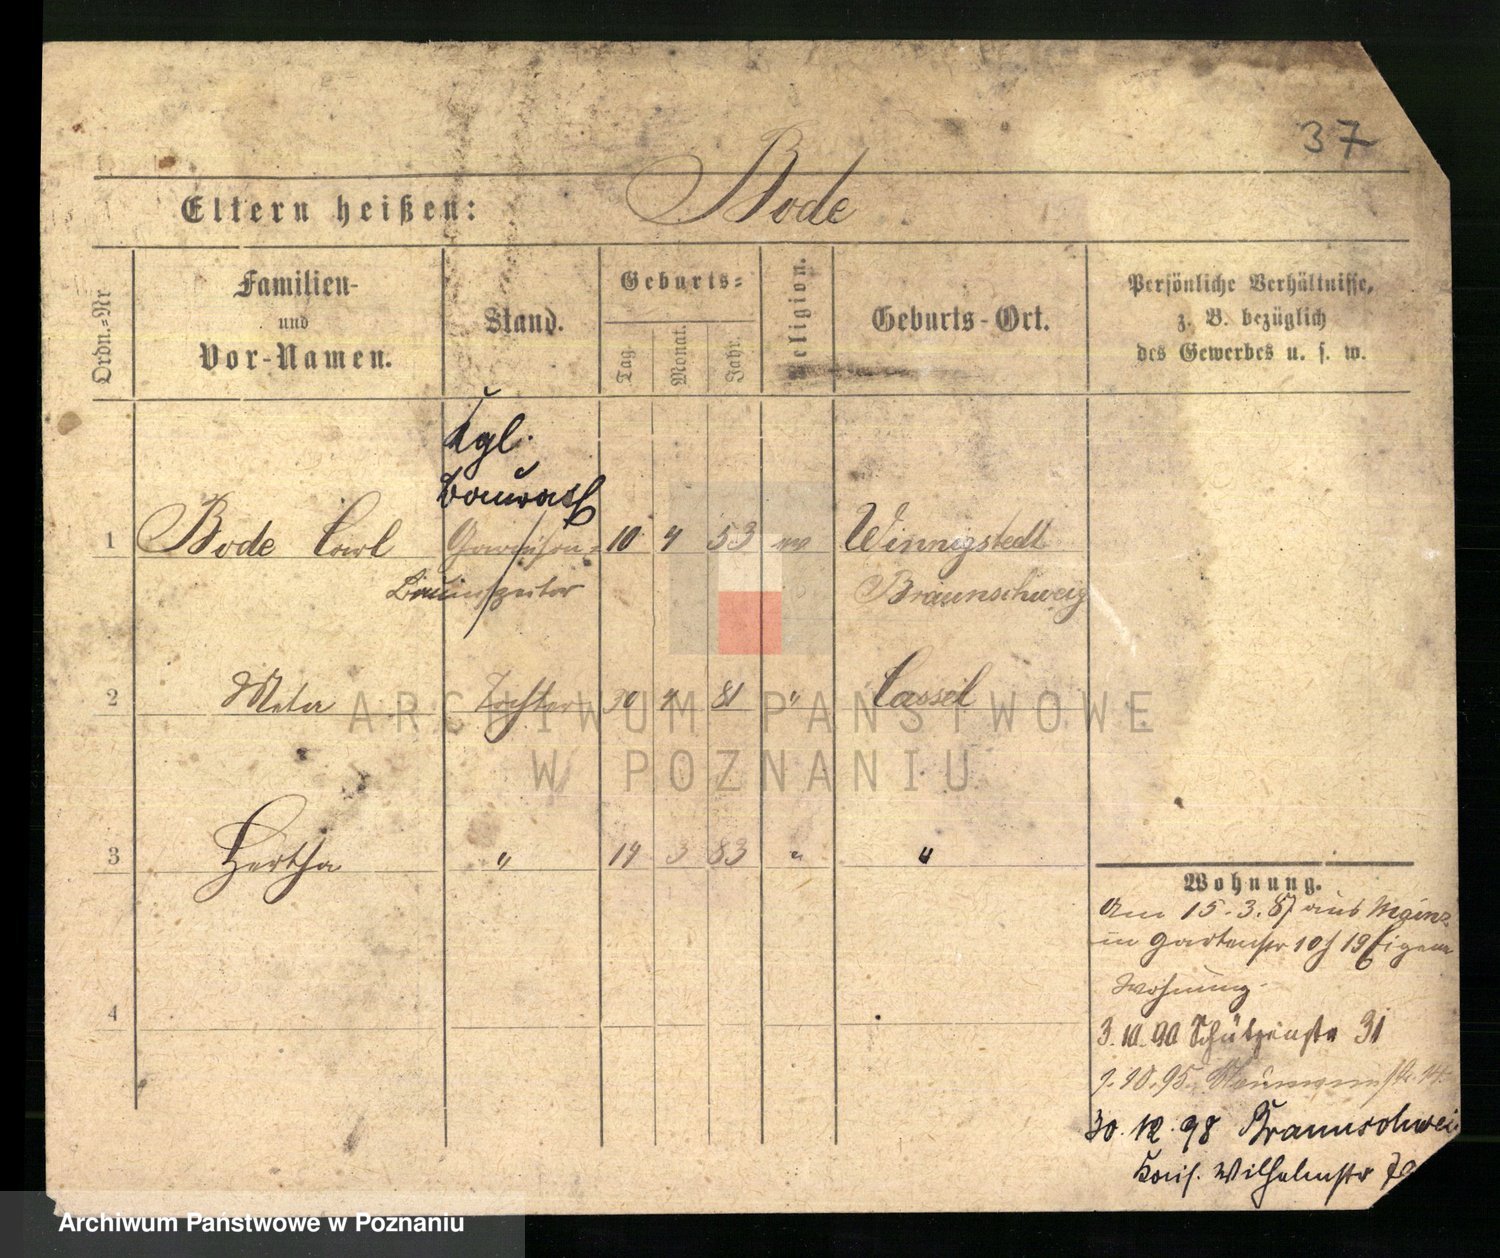 37
Eltern heißen: Bode
Ordn.=Nr
Familien-
und
Vor-Namen.
Stand.
Geburts=
Tag.
Monat.
Jahr.
Religion.
Geburts-Ort.
Persönliche Verhältnisse,
z. B. bezüglich
des Gewerbes u. s. w.
Kgl.
Baurath
1 Bode Carl Garnison= 10 4 53 ev Winnigstedt
Bauinspektor Braunschweig
2 Meta Tochter 30 4 81 " Cassel
3 Hertha " 14 3 83 " "
4
Wohnung.
Am 15.3.87 aus Mainz
in Gartenstr 19
Wohnung.
3.10.90 Schützenstr 31
1.10.95. Naumannstr. 14
30.12.98 Braunschwei
Kais. Wilhelmstr
ARCHIWUM PAŃSTWOWE
W POZNANIU
Archiwum Państwowe w Poznaniu